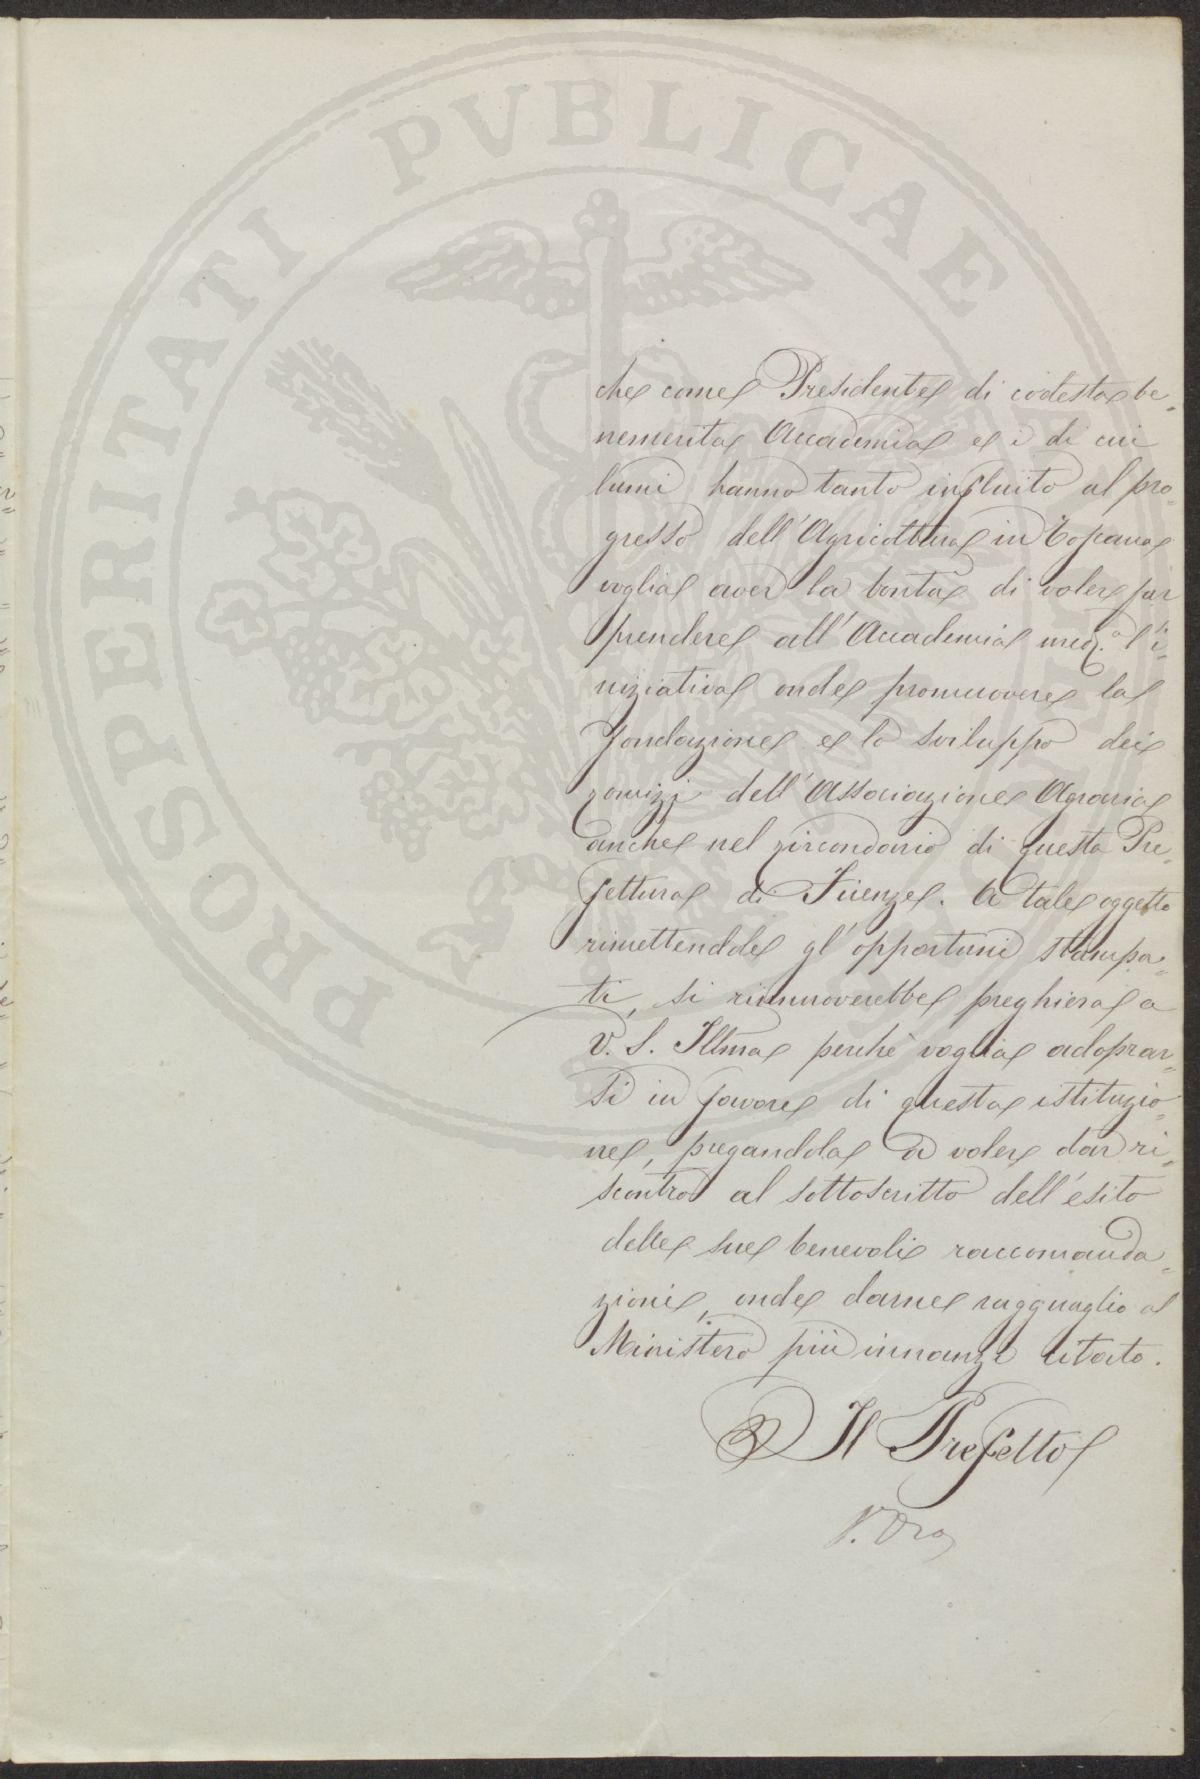 PROSPERITATI PVBLICAE
che come Presidente di codesta be„
nemerita Accademia e i di cui
lumi hanno tanto influito al pro„
gresso dell'Agricoltura in Toscana
voglia aver la bontà di voler far
prendere all'Accademia med.a l'i„
niziativa onde promuovere la
fondazione e lo sviluppo dei
Comizj dell'Associazione Agraria
anche nel circondario di questa Pre„
fettura di Firenze. A tale oggetto
rimettendole gl'opportuni stampa„
ti, si rinnuoverebbe preghiera a
V. S. Illma perchè voglia adoprar„
si in favore di questa istituzio„
ne, pregandola a voler dar ri„
scontro al sottoscritto dell'esito
delle sue benevoli raccomanda„
zioni, onde darne ragguaglio al
Ministero più innanzi citato.
Il Prefetto